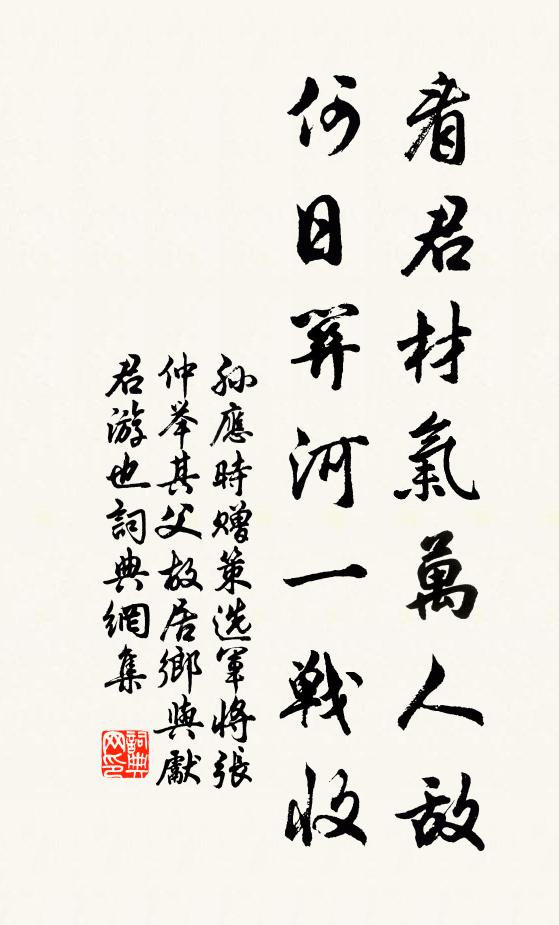 看君材氣萬人敵
何日關河一戰收
孫應時贈策选軍將張
仲举其父故居鄉與獻
君游也詞典網集
詞典网印